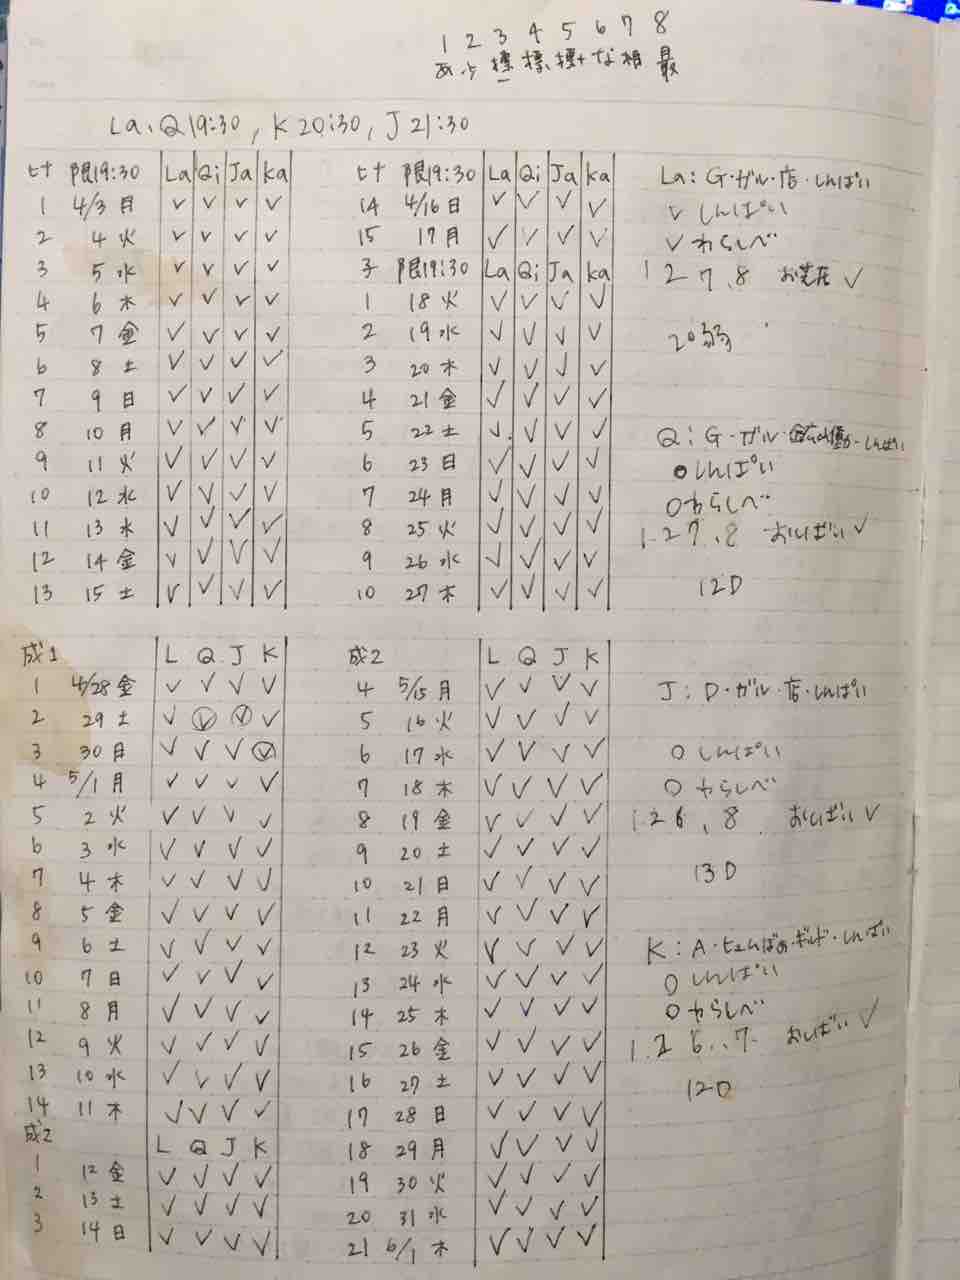 1 2 3 4 5 6 7 8
あ ふ 標 標 標+ な 相 最
La、Q19:30, K20:30, J21:30
ヒナ 限19:30 La Qi Ja ka
1 4/3月 ✓ ✓ ✓ ✓
2 4火 ✓ ✓ ✓ ✓
3 5水 ✓ ✓ ✓ ✓
4 6木 ✓ ✓ ✓ ✓
5 7金 ✓ ✓ ✓ ✓
6 8土 ✓ ✓ ✓ ✓
7 9日 ✓ ✓ ✓ ✓
8 10月 ✓ ✓ ✓ ✓
9 11火 ✓ ✓ ✓ ✓
10 12水 ✓ ✓ ✓ ✓
11 13木 ✓ ✓ ✓ ✓
12 14金 ✓ ✓ ✓ ✓
13 15土 ✓ ✓ ✓ ✓
ヒナ 限19:30 La Qi Ja ka
14 4/16日 ✓ ✓ ✓ ✓
15 17月 ✓ ✓ ✓ ✓
子 限19:30 La Qi Ja ka
1 18火 ✓ ✓ ✓ ✓
2 19水 ✓ ✓ ✓ ✓
3 20木 ✓ ✓ ✓ ✓
4 21金 ✓ ✓ ✓ ✓
5 22土 ✓ ✓ ✓ ✓
6 23日 ✓ ✓ ✓ ✓
7 24月 ✓ ✓ ✓ ✓
8 25火 ✓ ✓ ✓ ✓
9 26水 ✓ ✓ ✓ ✓
10 27木 ✓ ✓ ✓ ✓
La: G・ガル・店・しんぱい
✓ しんぱい
✓ わらしべ
1 2 7、8 ✓
20弱
Qi: G・ガル・しんぱい
○しんぱい
○わらしべ
1.2 7、8 おしばい ✓
12D
成1 L Q J K
1 4/28金 ✓ ✓ ✓ ✓
2 29土 ✓ ✓ ✓ ✓
3 30日 ✓ ✓ ✓ ✓
4 5/1月 ✓ ✓ ✓ ✓
5 2火 ✓ ✓ ✓ ✓
6 3水 ✓ ✓ ✓ ✓
7 4木 ✓ ✓ ✓ ✓
8 5金 ✓ ✓ ✓ ✓
9 6土 ✓ ✓ ✓ ✓
10 7日 ✓ ✓ ✓ ✓
11 8月 ✓ ✓ ✓ ✓
12 9火 ✓ ✓ ✓ ✓
13 10水 ✓ ✓ ✓ ✓
14 11木 ✓ ✓ ✓ ✓
成2 L Q J K
1 12金 ✓ ✓ ✓ ✓
2 13土 ✓ ✓ ✓ ✓
3 14日 ✓ ✓ ✓ ✓
成2 L Q J K
4 5/15月 ✓ ✓ ✓ ✓
5 16火 ✓ ✓ ✓ ✓
6 17水 ✓ ✓ ✓ ✓
7 18木 ✓ ✓ ✓ ✓
8 19金 ✓ ✓ ✓ ✓
9 20土 ✓ ✓ ✓ ✓
10 21日 ✓ ✓ ✓ ✓
11 22月 ✓ ✓ ✓ ✓
12 23火 ✓ ✓ ✓ ✓
13 24水 ✓ ✓ ✓ ✓
14 25木 ✓ ✓ ✓ ✓
15 26金 ✓ ✓ ✓ ✓
16 27土 ✓ ✓ ✓ ✓
17 28日 ✓ ✓ ✓ ✓
18 29月 ✓ ✓ ✓ ✓
19 30火 ✓ ✓ ✓ ✓
20 31水 ✓ ✓ ✓ ✓
21 6/1木 ✓ ✓ ✓ ✓
J: D・ガル・店・しんぱい
○ しんぱい
○ わらしべ
1.2 6、8 おしばい ✓
13D
K: A・しんぱい
○ しんぱい
○ わらしべ
1.2 6、7 おしばい ✓
12D